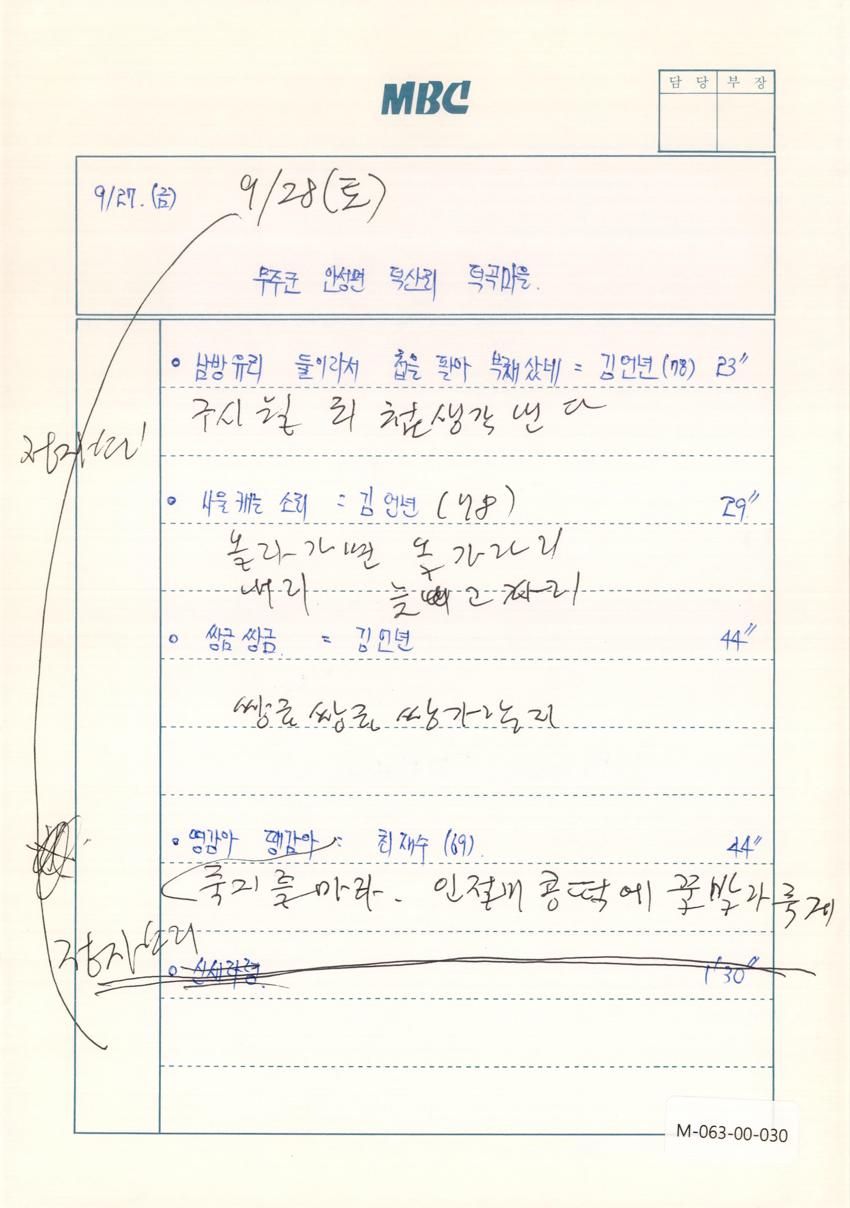 MBC
담 당 부 장
9/27.(금) 9/28(토)
무주군 안성면 덕산리 덕곡마을.
• 남방유리 들이라서 첩을 팔아 부채샀네 = 김언년(78) 23"
구시월 되 첩생각 낸다
• 나물캐는 소리 = 김언년 (78) 29"
올라가면 올가리
내리 늦 고 자리
• 쌍금쌍금 = 김언년 44"
쌍금 쌍금 쌍가락지
• 영감아 땡감아 = 최재수 (69). 44"
죽지를 마라. 인절미 콩떡에 꿀발라 줄게
장자소리
• 신세타령. 1'30"
M-063-00-030